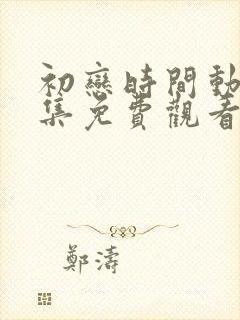 初戀時間動
集免費觀看
鄭濤